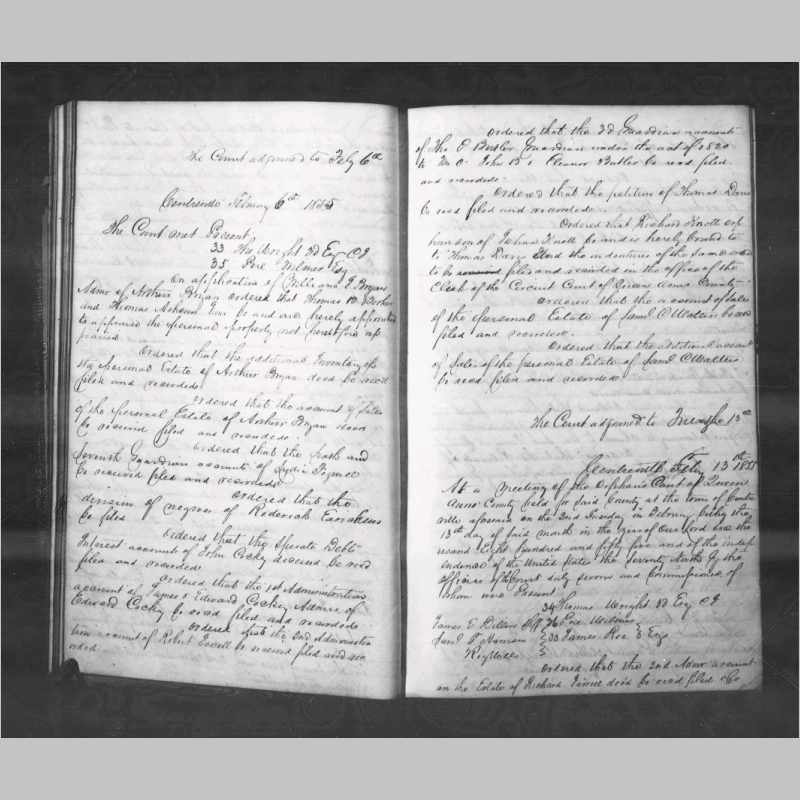 The Court adjorned to Feby 6th
Centreville February 6th 1855
The Court met Present
33 Tho Wright 3d Esq CJ
35 Pere Wilmer Esq
On application of William J Bryan
Admr of Arthur Bryan ordered that Thomas B
and Thomas be and are hereby appointed
to appraise the personal property not heretofore ap
praised
Ordered that the additional Inventory of
the personal Estate of Arthur Bryan decd be recd
filed and recorded
Ordered that the account of Sales
of the personal Estate of Arthur Bryan decd
be received filed and recorded
Ordered that the Sixth and
Seventh Guardian accounts of Lydia
be received filed and recorded
Ordered that the
division of negroes of Roderick Earickson
be filed
Ordered that the Sperate Debts
Interest account of John Cocky deceased be recd
filed and recorded
Ordered that the 1st Administration
account of James & Edward Cockey Admrs of
Edward Cocky be recd filed and recorded
Ordered that the 2nd Administra
tion account of Robert be received filed and rec
orded
Ordered that the 3d Guardian account
of Tho O Butler Guardian under the act of 1820
to M C John B & Eleanor Butler be recd filed
and recorded
Ordered that the petition of Thomas Davis
be recd filed and recorded
Ordered that Richard Knott orp
han son of Joshua Knott be and is hereby bound to
to Thomas Davis and the indenture of the same ord
to be filed and recorded in the office of the
Clerk of the Circuit Court of Queen Anns County
Ordered that the account of Sales
of the personal Estate of Saml C Walters be recd
filed and recorded
Ordered that the additional account
of Sales of the personal Estate of Saml C Walters
be recd filed and recorded
The Court adjorned to Tuesday 13th
Centreville Feby 13th 1855
At a meeting of the Orphans Court of Queen
Anns County held for said County at the town of Centre
ville aforesaid on the 2nd Tuesday in February being the
13th day of said month in the year of our Lord one tho
usand Eight hundred and fifty five and of the indep
endence of the United States the seventy ninth of the
officers of the Court duly sworn and Commissioned of
whom were Present
34 Thomas Wright 3d Esq CJ
James E 36 Pere Wilmer
Saml T Harrison 33 James Roe 3 Esqs
Reg Wills
Ordered that the 2nd Admr account
on the Estate of Richard decd be recd filed &c